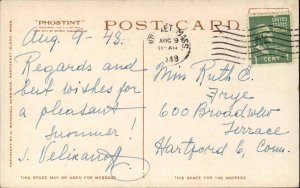 "PHOSTINT"
POST CARD
Aug. 9 - 48.
Regards and
best wishes for
a pleasant
summer!
AUG 9
Miss Ruth E.
Frye
600 Broadview
Terrace
Hartford 6, Conn.
CENT
THIS SPACE MAY BE USED FOR MESSAGE.
THIS SPACE FOR THE ADDRESS.